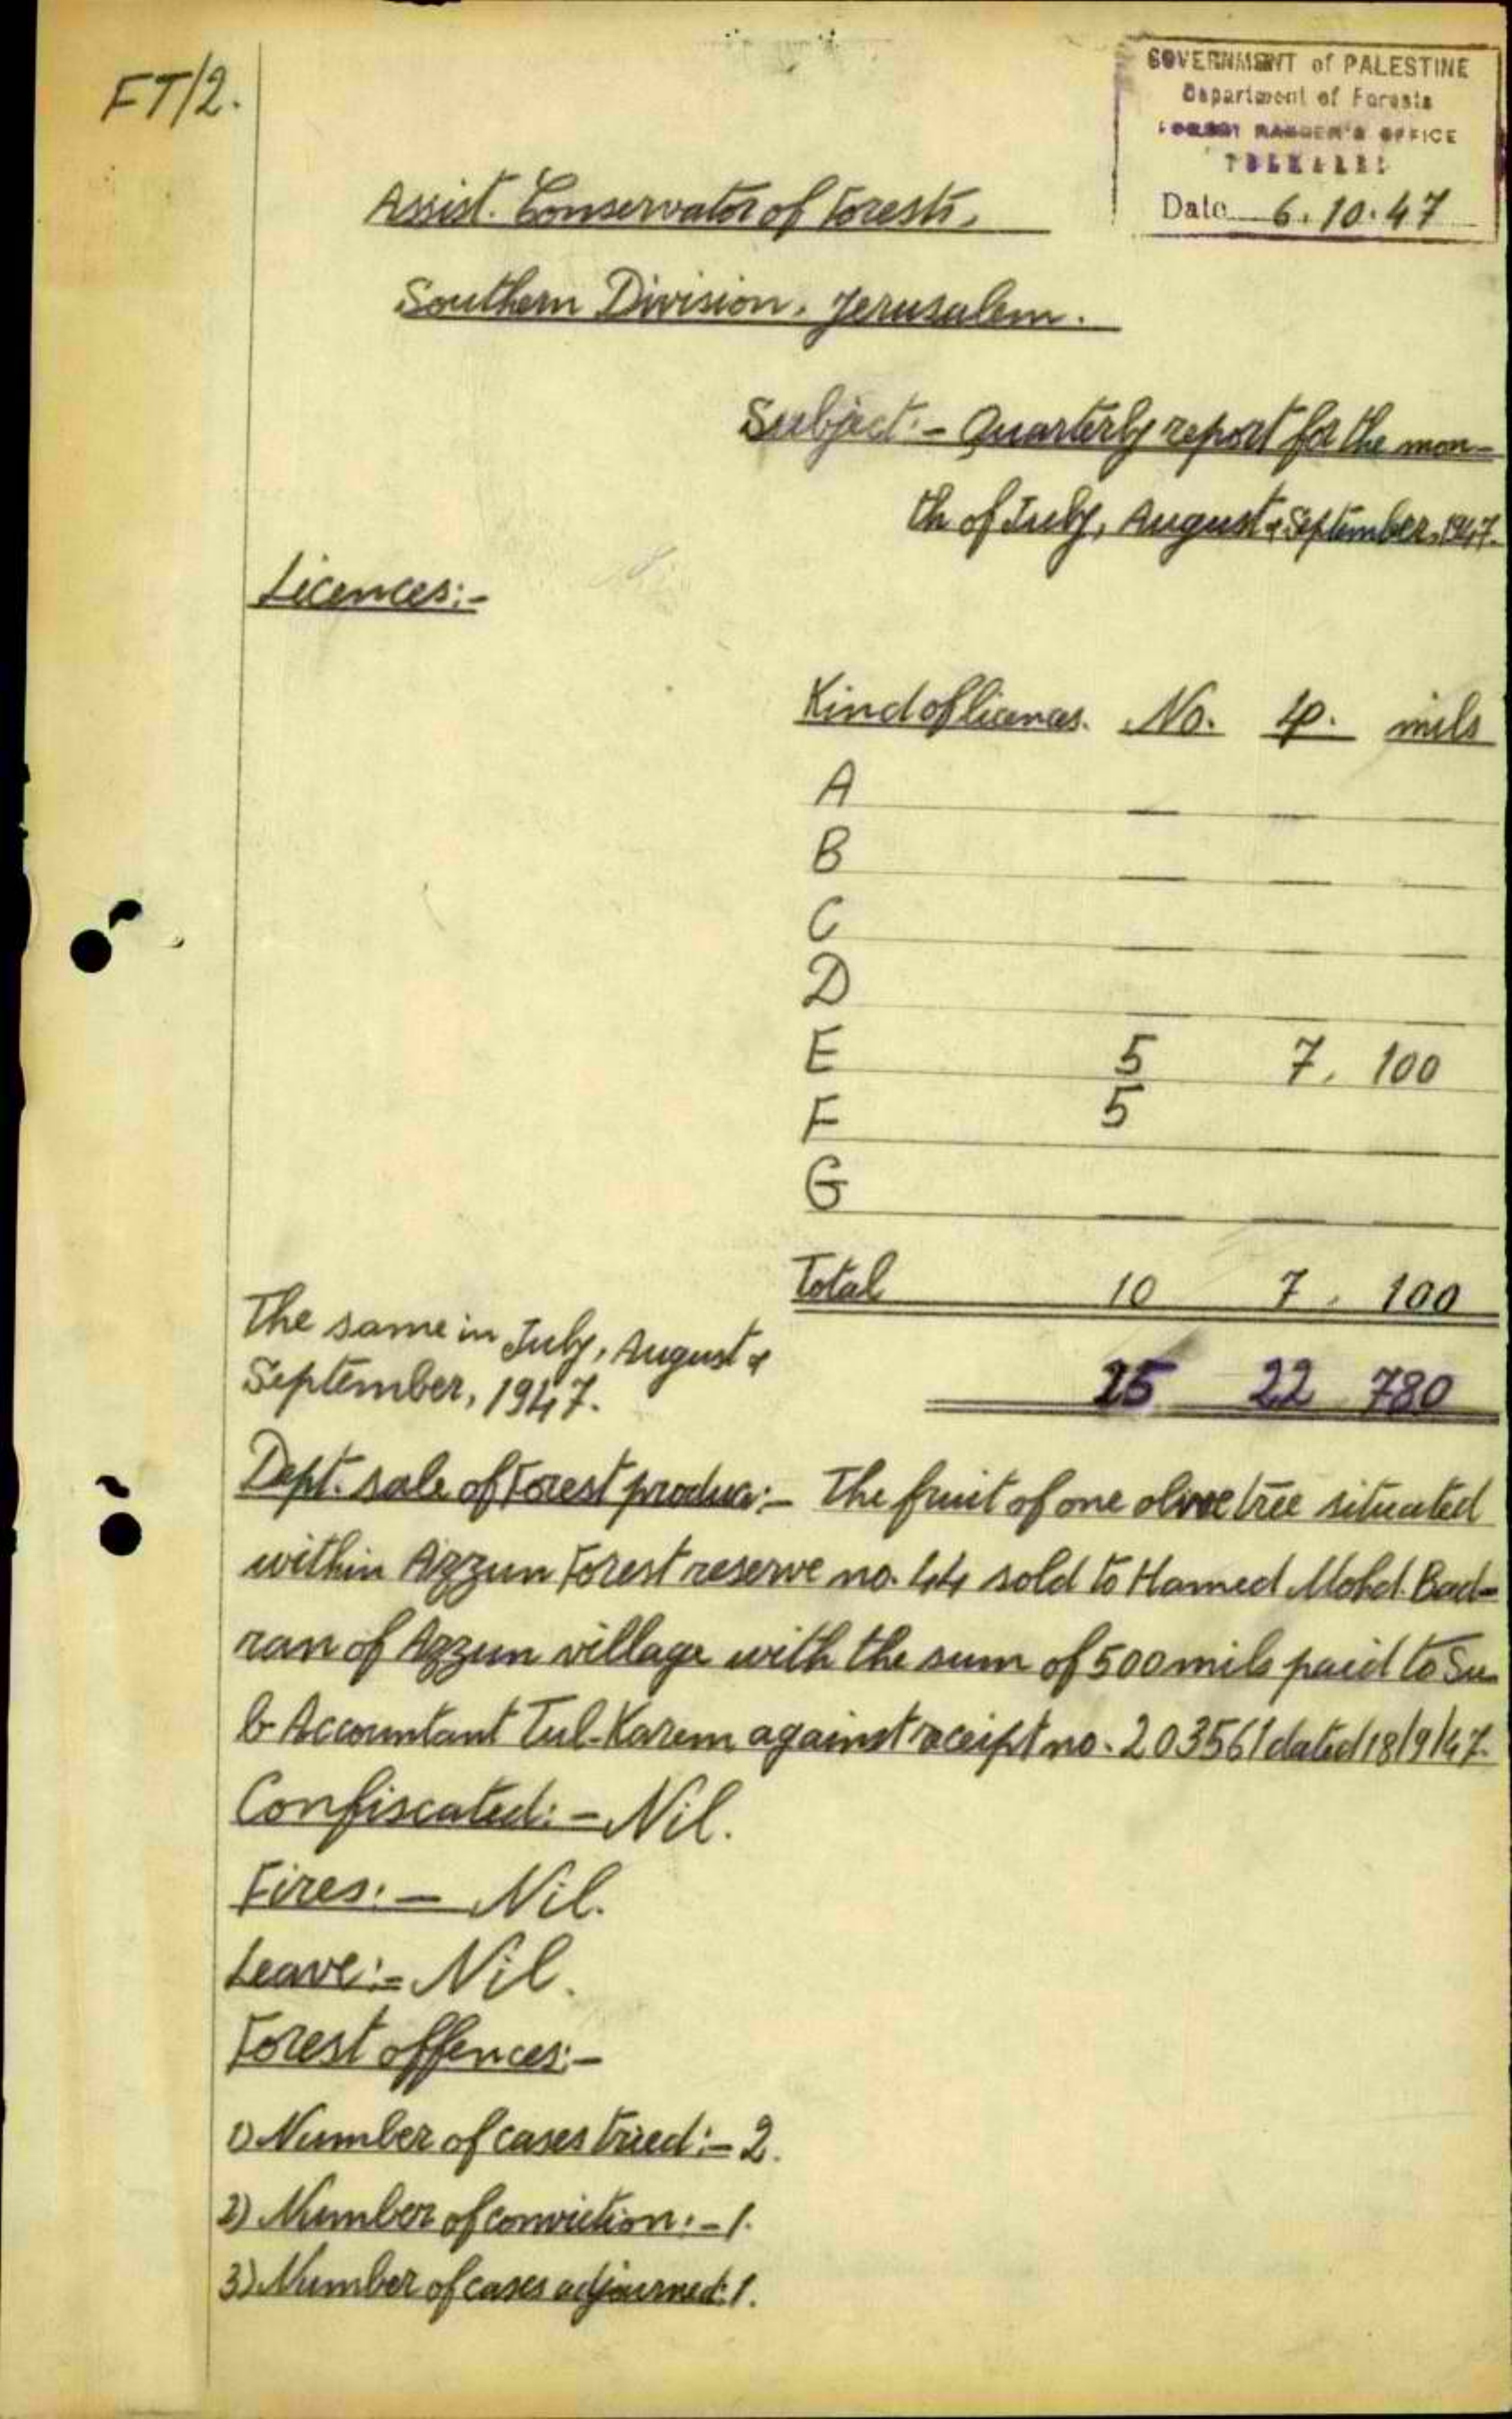 FT/2.
GOVERNMENT of PALESTINE
Department of Forests
FOREST RANGER'S OFFICE
TULKAREM
Date 6.10.47
Assist. Conservator of Forests,
Southern Division, Jerusalem.
Subject:- Quarterly report for the mon-
th of July, August & September, 1947.
Licences:-
Kind of licences. No. LP. mils
A — — —
B — — —
C — — —
D — — —
E 5 7. 100
F 5 — —
G — — —
Total 10 7. 100
The same in July, August &
September, 1947.
25 22 780
Dept. sale of Forest produce:- The fruit of one olive tree situated
within Azzun Forest reserve no. 44 sold to Hamed Mohd. Bad-
ran of Azzun village with the sum of 500 mils paid to Su-
b-Accountant Tul-Karem against receipt no. 203561 dated 18/9/47.
Confiscated:- Nil.
Fires:- Nil.
Leave:- Nil.
Forest offences:-
1) Number of cases tried:- 2.
2) Number of conviction:- 1.
3) Number of cases adjourned: 1.